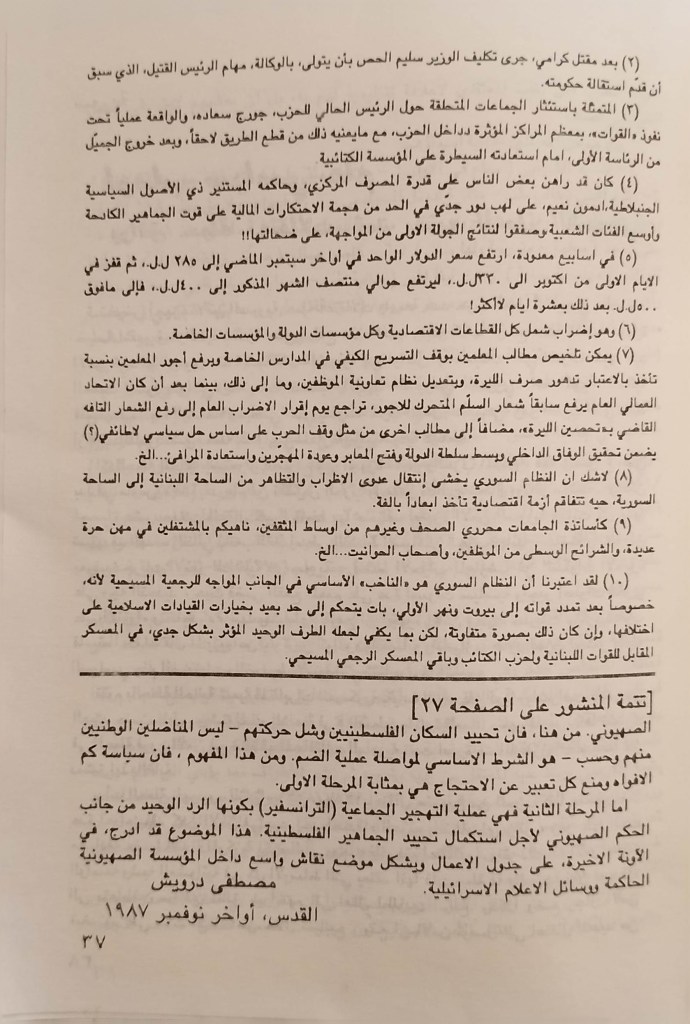 (٢) بعد مقتل كرامي، جرى تكليف الوزير سليم الحص بأن يتولى، بالوكالة، مهام الرئيس القتيل، الذي سبق
أن قدّم استقالة حكومته.
(٣) المتمثلة باستئثار الجماعات المتحلقة حول الرئيس الحالي للحزب، جورج سعاده، والواقعة عملياً تحت
نفوذ «القوات»، بمعظم المراكز المؤثرة دداخل الحزب، مع مايعنيه ذلك من قطع الطريق لاحقاً، وبعد خروج الجميّل
من الرئاسة الأولى، امام استعادته السيطرة على المؤسسة الكتائبية
(٤) كان قد راهن بعض الناس على قدرة المصرف المركزي، وحاكمه المستنير ذي الأصول السياسية
الجنبلاطية،ادمون نعيم، على لهب دور جدّي في الحد من هجمة الاحتكارات المالية على قوت الجماهير الكادحة
وأوسع الفئات الشعبية وصفقوا لنتائج الجولة الاولى من المواجهة، على ضحالتها!!
(٥) في اسابيع معدودة، ارتفع سعر الدولار الواحد في أواخر سبتمبر الماضي إلى ٢٨٥ ل.ل.، ثم قفز في
الايام الاولى من اكتوبر الى ٣٣٠ل.ل.، ليرتفع حوالي منتصف الشهر المذكور إلى ٤٠٠ل.ل.، فإلى مافوق
٥٠٠ل.ل. بعد ذلك بعشرة ايام لاأكثر!
(٦) وهو إضراب شمل كل القطاعات الاقتصادية وكل مؤسسات الدولة والمؤسسات الخاصة.
(٧) يمكن تلخيص مطالب المعلمين بوقف التسريح الكيفي في المدارس الخاصة وبرفع أجور المعلمين بنسبة
تأخذ بالاعتبار تدهور صرف الليرة، وبتعديل نظام تعاونية الموظفين، وما إلى ذلك، بينما بعد أن كان الاتحاد
العمالي العام يرفع سابقاً شعار السلّم المتحرك للاجور، تراجع يوم إقرار الاضراب العام إلى رفع الشعار التافه
القاضي بـ«تحصين الليرة»، مضافاً إلى مطالب اخرى من مثل وقف الحرب على اساس حل سياسي لاطائفي(؟)
يضمن تحقيق الوفاق الداخلي وبسط سلطة الدولة وفتح المعابر وعودة المهجّرين واستعادة المرافئ...الخ.
(٨) لاشك ان النظام السوري يخشى إنتقال عدوى الاظراب والتظاهر من الساحة اللبنانية إلى الساحة
السورية، حيه تتفاقم أزمة اقتصادية تأخذ ابعاداً بالغة.
(٩) كأساتذة الجامعات محرري الصحف وغيرهم من اوساط المثقفين، ناهيكم بالمشتغلين في مهن حرة
عديدة، والشرائح الوسطى من الموظفين، وأصحاب الحوانيت...الخ.
(١٠) لقد اعتبرنا أن النظام السوري هو «الناخب» الأساسي في الجانب المواجه للرجعية المسيحية لأنه،
خصوصاً بعد تمدد قواته إلى بيروت ونهر الأولي، بات يتحكم إلى حد بعيد بخيارات القيادات الاسلامية على
اختلافها، وإن كان ذلك بصورة متفاوتة، لكن بما يكفي لجعله الطرف الوحيد المؤثر بشكل جدي، في المعسكر
المقابل للقوات اللبنانية ولحزب الكتائب وباقي المعسكر الرجعي المسيحي.
[تتمة المنشور على الصفحة ٢٧]
الصهيوني. من هنا، فان تحييد السكان الفلسطينيين وشل حركتهم – ليس المناضلين الوطنيين
منهم وحسب – هو الشرط الاساسي لمواصلة عملية الضم. ومن هذا المفهوم ، فان سياسة كم
الافواه ومنع كل تعبير عن الاحتجاج هي بمثابة المرحلة الاولى.
اما المرحلة الثانية فهي عملية التهجير الجماعية (الترانسفير) بكونها الرد الوحيد من جانب
الحكم الصهيوني لأجل استكمال تحييد الجماهير الفلسطينية. هذا الموضوع قد ادرج، في
الآونة الاخيرة، على جدول الاعمال ويشكل موضع نقاش واسع داخل المؤسسة الصهيونية
الحاكمة ووسائل الاعلام الاسرائيلية.
مصطفى درويش
القدس، أواخر نوفمبر ١٩٨٧
٣٧